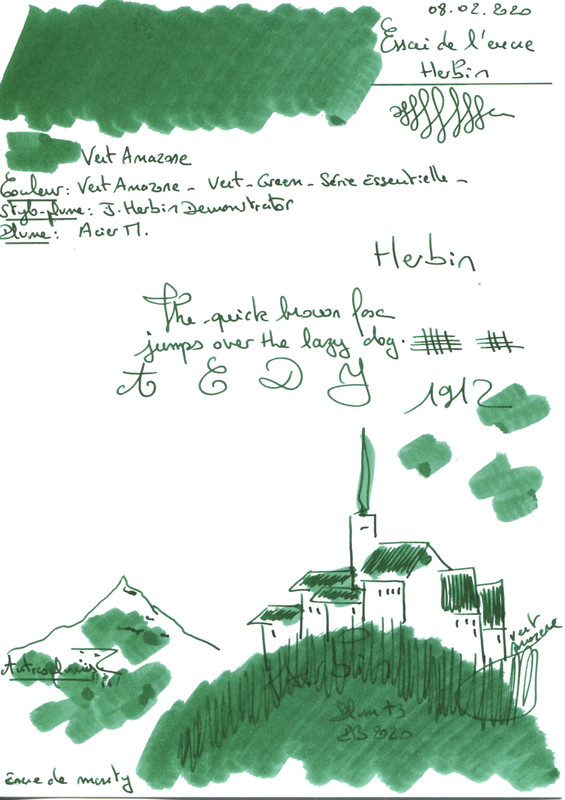 08.02.2020
Essai de l'encre
Herbin
Vert Amazone
Couleur: Vert Amazone - Vert - Green - Série Essentielle -
Stylo-plume: J. Herbin Demonstrator
Plume: Acier M.
Herbin
The quick brown fox
jumps over the lazy dog.
A E D Y
1912
vert
Amazone
Autres plumes
2020
Encre de monty